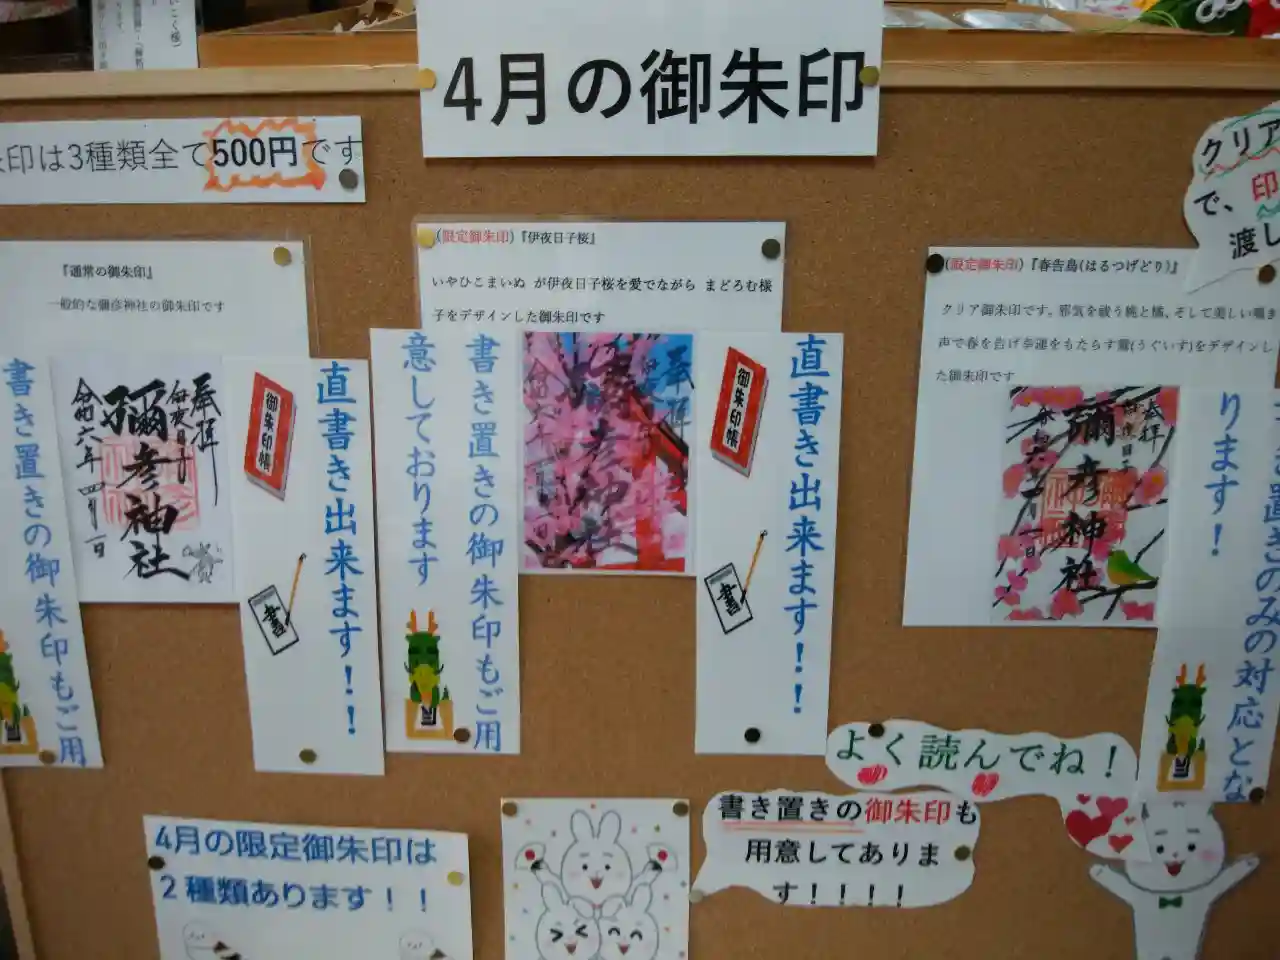 4月の御朱印
印は3種類全て500円です
クリア
で、印
渡し
『通常の御朱印』
一般的な彌彦神社の御朱印です
(限定御朱印)『伊夜日子桜』
いやひこまいぬ が伊夜日子桜を愛でながら まどろむ様
子をデザインした御朱印です
(限定御朱印)『春告鳥(はるつげどり)』
クリア御朱印です。邪気を祓う桃と橘、そして美しい囀き
声で春を告げ幸運をもたらす鶯(うぐいす)をデザインし
た御朱印です
書き置きの御朱印もご用
奉拝
伊夜日子
彌彦神社
令和六年四月一日
直書き出来ます!!
御朱印帳
書
書き置きの御朱印もご用
意しております
奉拝
彦神社
直書き出来ます!!
御朱印帳
書
奉拝
伊夜日子
彌彦神社
令和六年 月一日
置きのみの対応とな
ります!
よく読んでね!
書き置きの御朱印も
用意してありま
す!!!!
4月の限定御朱印は
2種類あります!!